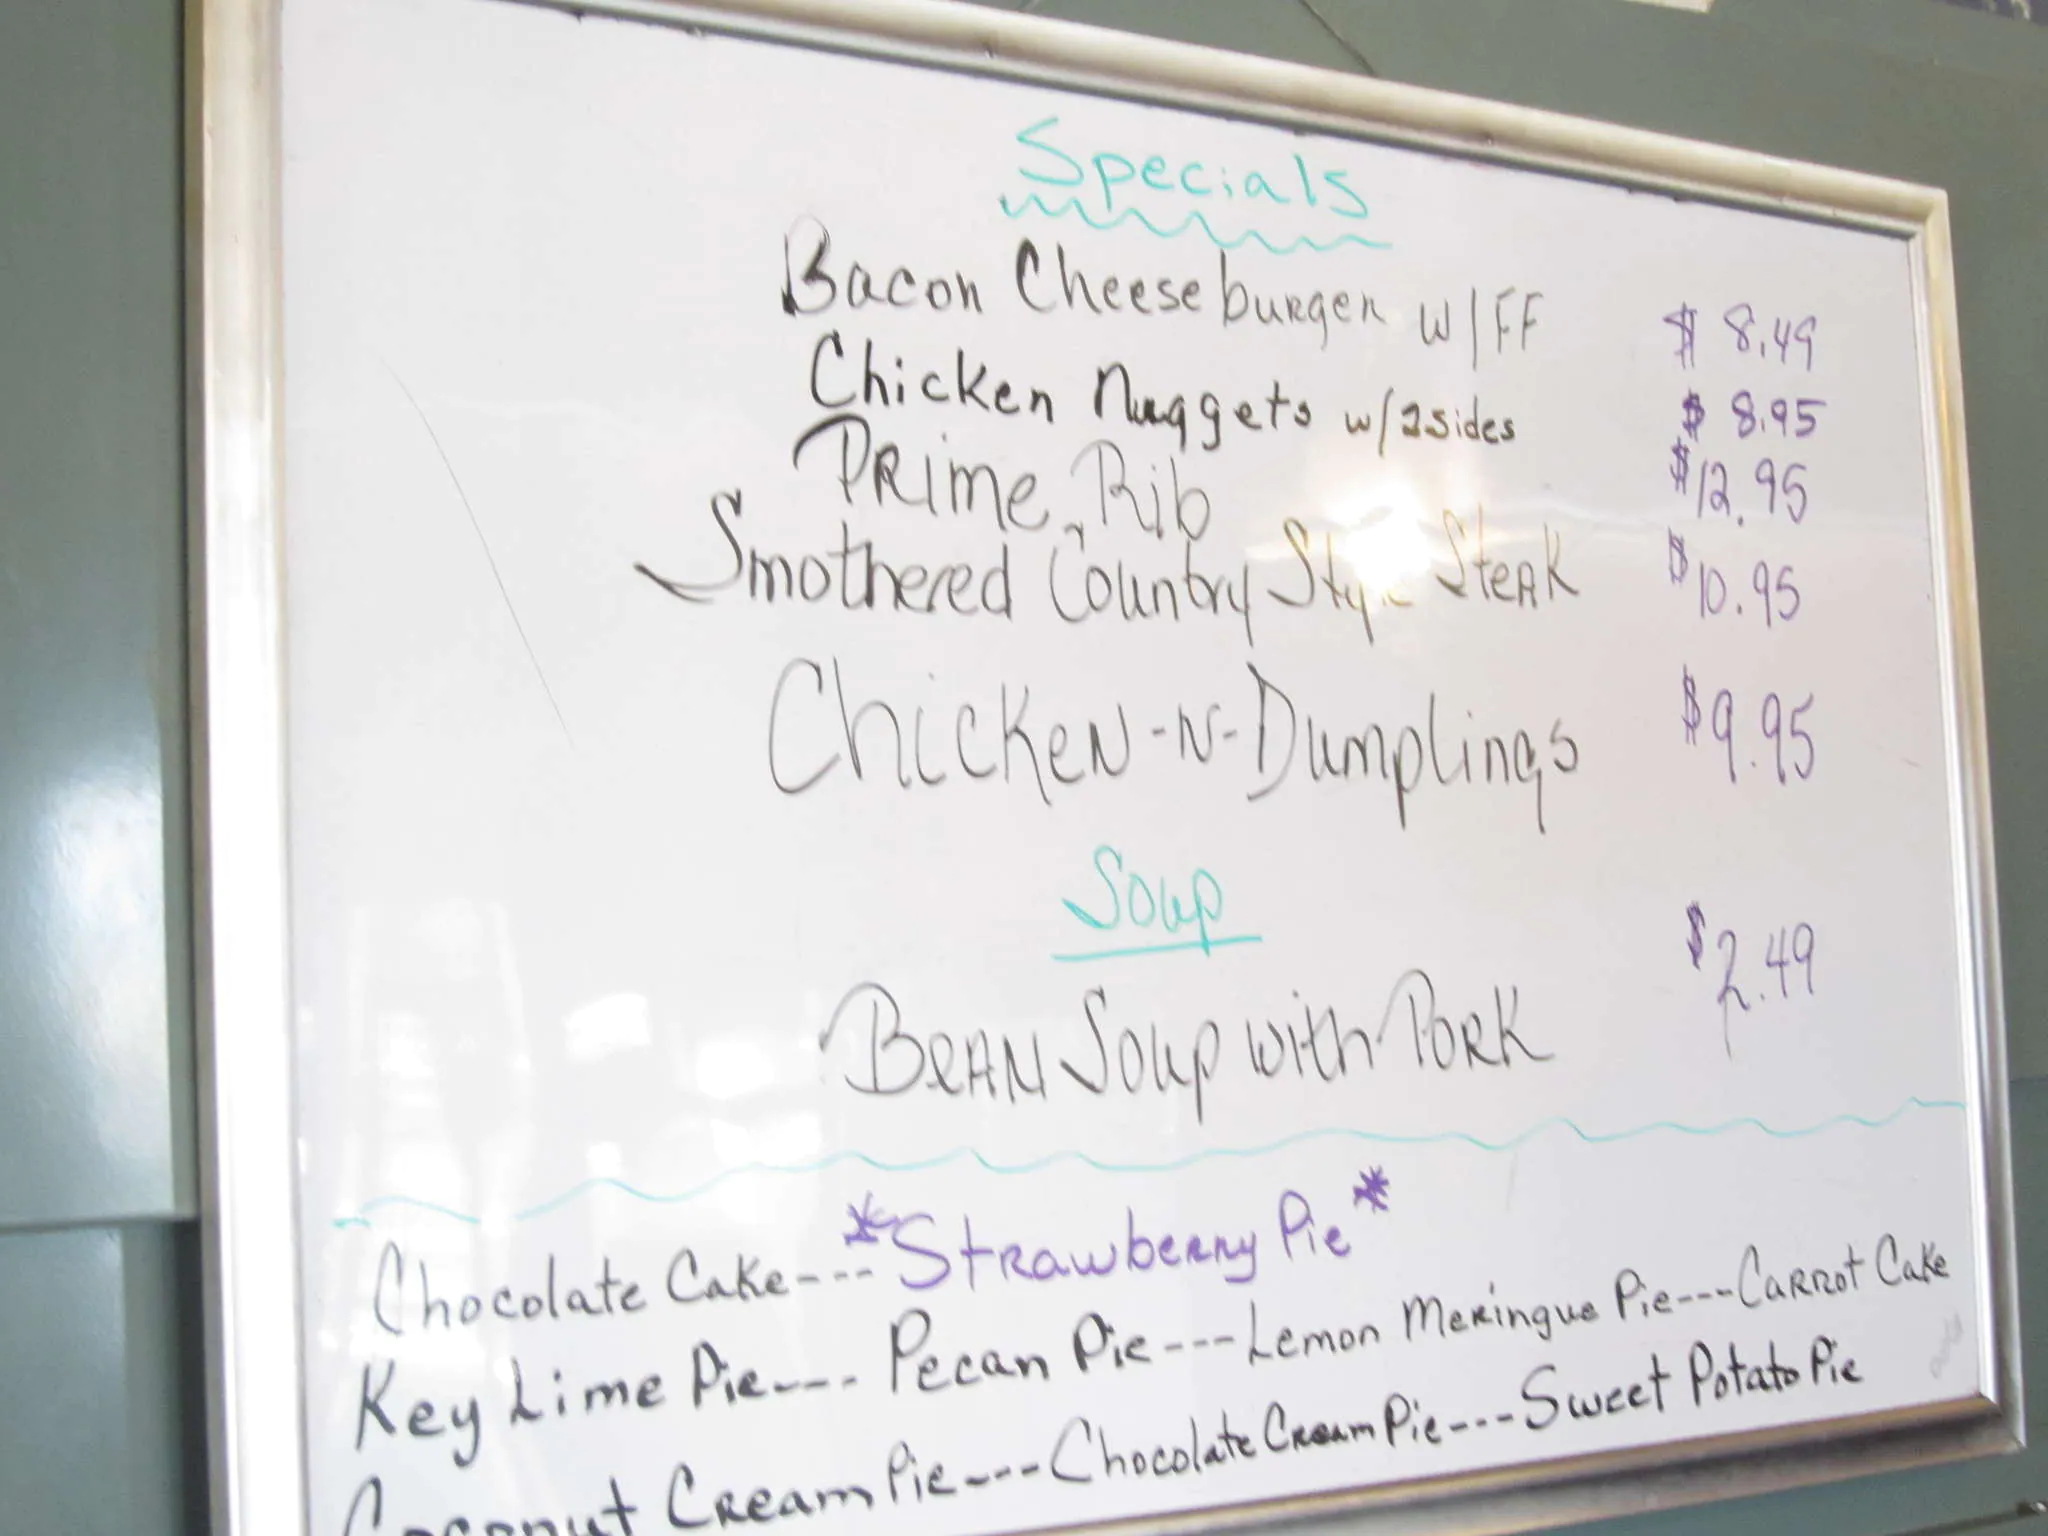 Specials
Bacon Cheeseburger w/FF $8.49
Chicken Nuggets w/2sides $8.95
Prime Rib $12.95
Smothered Country Style Steak $10.95
Chicken-N-Dumplings $9.95
Soup
Bean Soup with Pork $2.49
Chocolate Cake---*Strawberry Pie*
Key Lime Pie---Pecan Pie---Lemon Meringue Pie---Carrot Cake
Coconut Cream Pie---Chocolate Cream Pie---Sweet Potato Pie